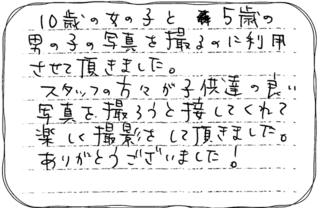 10歳の女の子と5歳の
男の子の写真を撮るのに利用
させて頂きました。
スタッフの方々が子供達の良い
写真を撮ろうと接してくれて
楽しく撮影をして頂きました。
ありがとうございました！